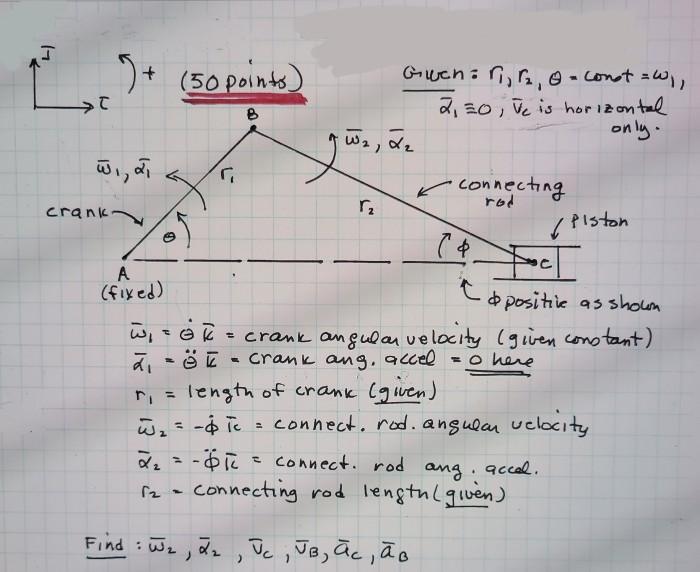 J̄
+
ī
(50 points)
Given: r₁, r₂, θ̇ = const = ω₁,
ᾱ₁ ≡ 0, v̄c is horizontal
only.
B
ω̄₂, ᾱ₂
ω̄₁, ᾱ₁
r₁
connecting
rod
r₂
crank
Piston
θ
φ
C
A
(fixed)
φ positie as shown
ω̄₁ = θ̇ k̄ = crank angular velocity (given constant)
ᾱ₁ = θ̈ k̄ = crank ang. accel = 0 here
r₁ = length of crank (given)
ω̄₂ = -φ̇ k̄ = connect. rod. angular velocity
ᾱ₂ = -φ̈ k̄ = connect. rod ang. accel.
r₂ = connecting rod length (given)
Find: ω̄₂, ᾱ₂, v̄c, v̄B, āc, āB